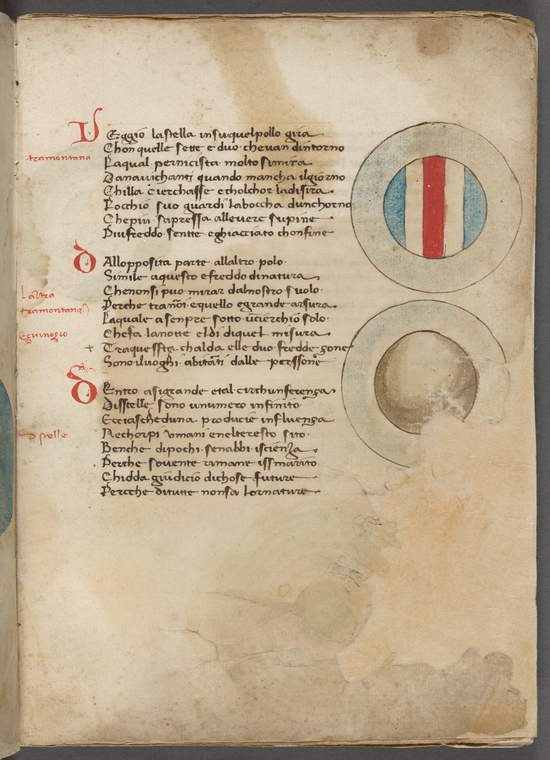 Veggio lastella insuquelpollo gira
Chonquelle sette e duo chevan dintorno
tramontana
Laqual pernicista molto simira
Danavichanti quando mancha ilgiorno
Chilla cierchasse etholchor ladisira
Locchio suo guardi laboccha dunchorno
Chepiu sapressa allevere supine
Piufreddo sentte eghiacciato chonfine
Dallopposita parte allaltro polo
Simile aquesto efreddo dinatura
Laltra
Chenonsi puo mirar dalnostro suolo
tramontana
Perche tranoi equello egrande arsura
Laquale asenpre sotto
solo
equinozio
Chefa lanotte eldi diquel misura
+ Traquesta chalda elle duo fredde zone
Sono iluoghi abitati dalle persone
Dentro asigrande etal circhunferenza
Distelle sono unumero infinito
Eciascheduna producie influenza
stelle
Nechorpi umani enelteresto sito
Benche dipochi senabbi iscienza
Perche sovente rimane ismarito
Chidda giudicio dichose future
Percche ditutte nonsa lornature